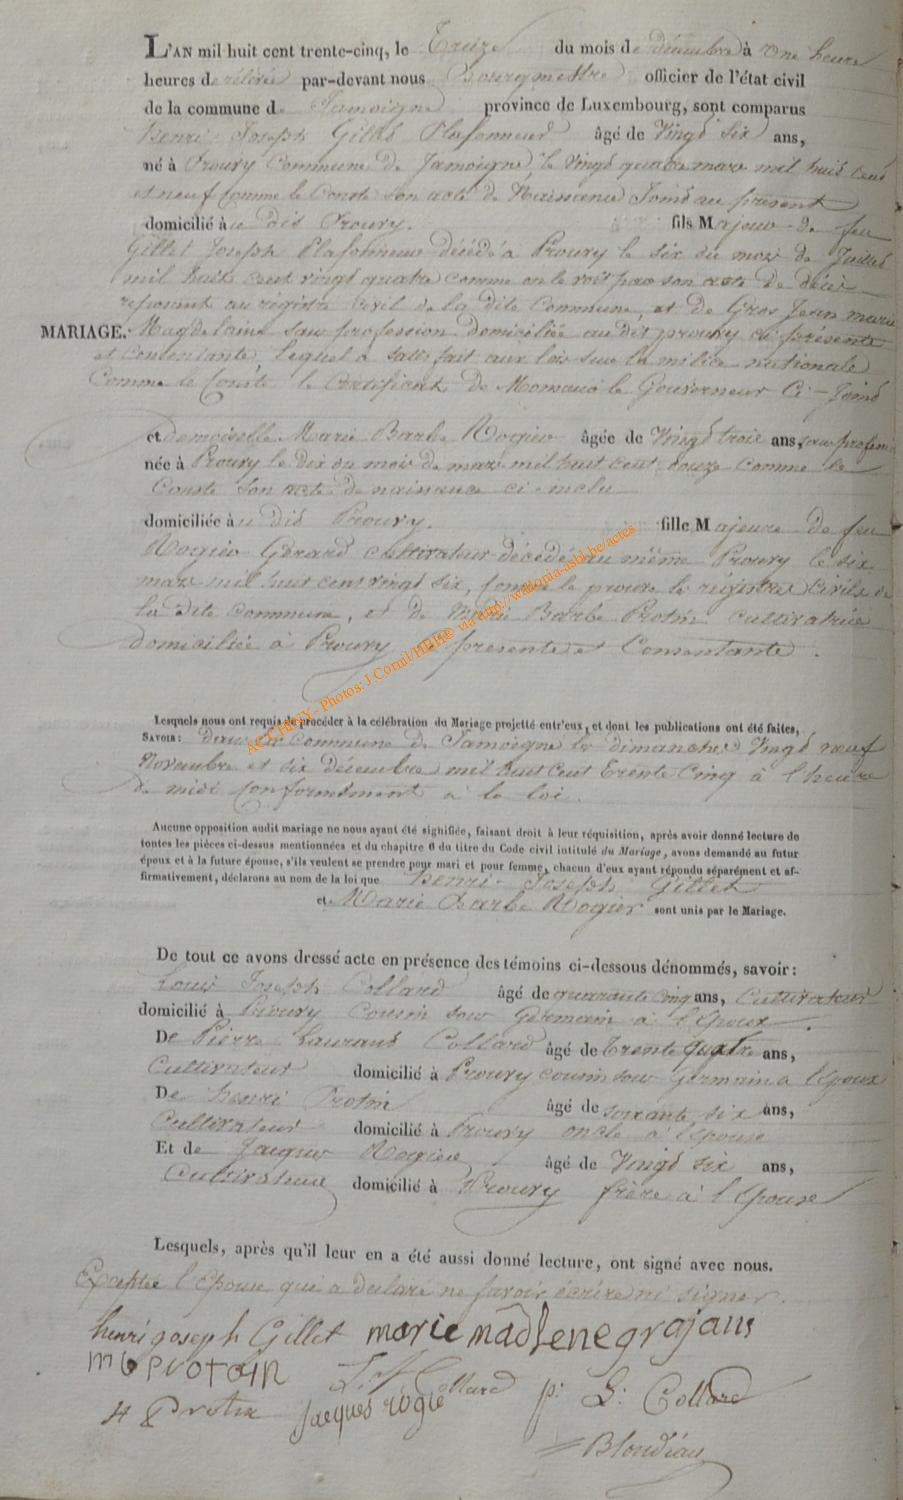 L'AN mil huit cent trente-cinq, le Treize du mois de décembre à une heure
heures de relevée par-devant nous Bourgmestre officier de l'état civil
de la commune de Jamoigne province de Luxembourg, sont comparus
Henri Joseph Gillet Plafonneur âgé de Vingt Six ans,
né à Prouvy Commune de Jamoigne, le Vingt quatre mars mil huit cent
et neuf comme le Conste son acte de Naissance Joind au présent
domicilié au dit Prouvy. fils Majeur de feu
Gillet Joseph Plafonneur décédé à Prouvy le six du mois de Juillet
mil huit cent vingt quatre comme on le voit par son acte de décès
reposant au registre Civil de la dite Commune, et de Gros Jean marie
MARIAGE. Magdelaine sans profession domiciliée au dit prouvy ci présente
et consentante, lequel a satisfait aux lois sur la milice nationale
Comme le Conste le Certificat de Monsieur le Gouverneur Ci-Joind
et demoiselle Marie Barbe Rogier âgée de Vingt trois ans, sans profession
née à Prouvy le dix du mois de mars mil huit cent douze comme le
Conste Son acte de naissance ci-inclu
domiciliée au dit Prouvy. fille Majeure de feu
Rogier Gérard cultivateur décédé au même Prouvy le six
mars mil huit cent vingt six, comme le prouve le registre Civil de
la dite commune, et de Marie Barbe Protin Cultivatrice
domiciliée à Prouvy ci présente et Consentante.
ACCHINY - Photos: J Cornil/HDH© via http://wallonia-asbl.be/actes
Lesquels nous ont requis de procéder à la célébration du Mariage projetté entr'eux, et dont les publications ont été faites,
SAVOIR: dans la commune de Jamoigne les dimanches Vingt neuf
Novembre et six décembre mil huit Cent Trente Cinq à l'heure
de midi conformément à la loi.
Aucune opposition audit mariage ne nous ayant été signifiée, faisant droit à leur réquisition, après avoir donné lecture de
toutes les pièces ci-dessus mentionnées et du chapitre 6 du titre du Code civil intitulé du Mariage, avons demandé au futur
époux et à la future épouse, s'ils veulent se prendre pour mari et pour femme, chacun d'eux ayant répondu séparément et af-
firmativement, déclarons au nom de la loi que henri-Joseph Gillet
et Marie Barbe Rogier sont unis par le Mariage.
De tout ce avons dressé acte en présence des témoins ci-dessous dénommés, savoir:
Louis Joseph Collard âgé de quarante cinq ans, Cultivateur
domicilié à Prouvy Cousin sous Germain à l'Epoux.
De Pierre Laurant Collard âgé de Trente quatre ans,
Cultivateur domicilié à Prouvy cousin sous germain a l'Epoux
De henri Protin âgé de soixante six ans,
Cultivateur domicilié à Prouvy oncle à l'Epouse
Et de Jacques Rogier âgé de Vingt six ans,
Cultivateur domicilié à Prouvy frère à l'Epouse
Lesquels, après qu'il leur en a été aussi donné lecture, ont signé avec nous.
Exceptée l'Epouse qui a déclaré ne savoir écrire ni signer.
henri joseph Gillet marie madlene grojans
m b protain L. J. Collard p: L: Collard
H Protin jacques rogié
Blondiau